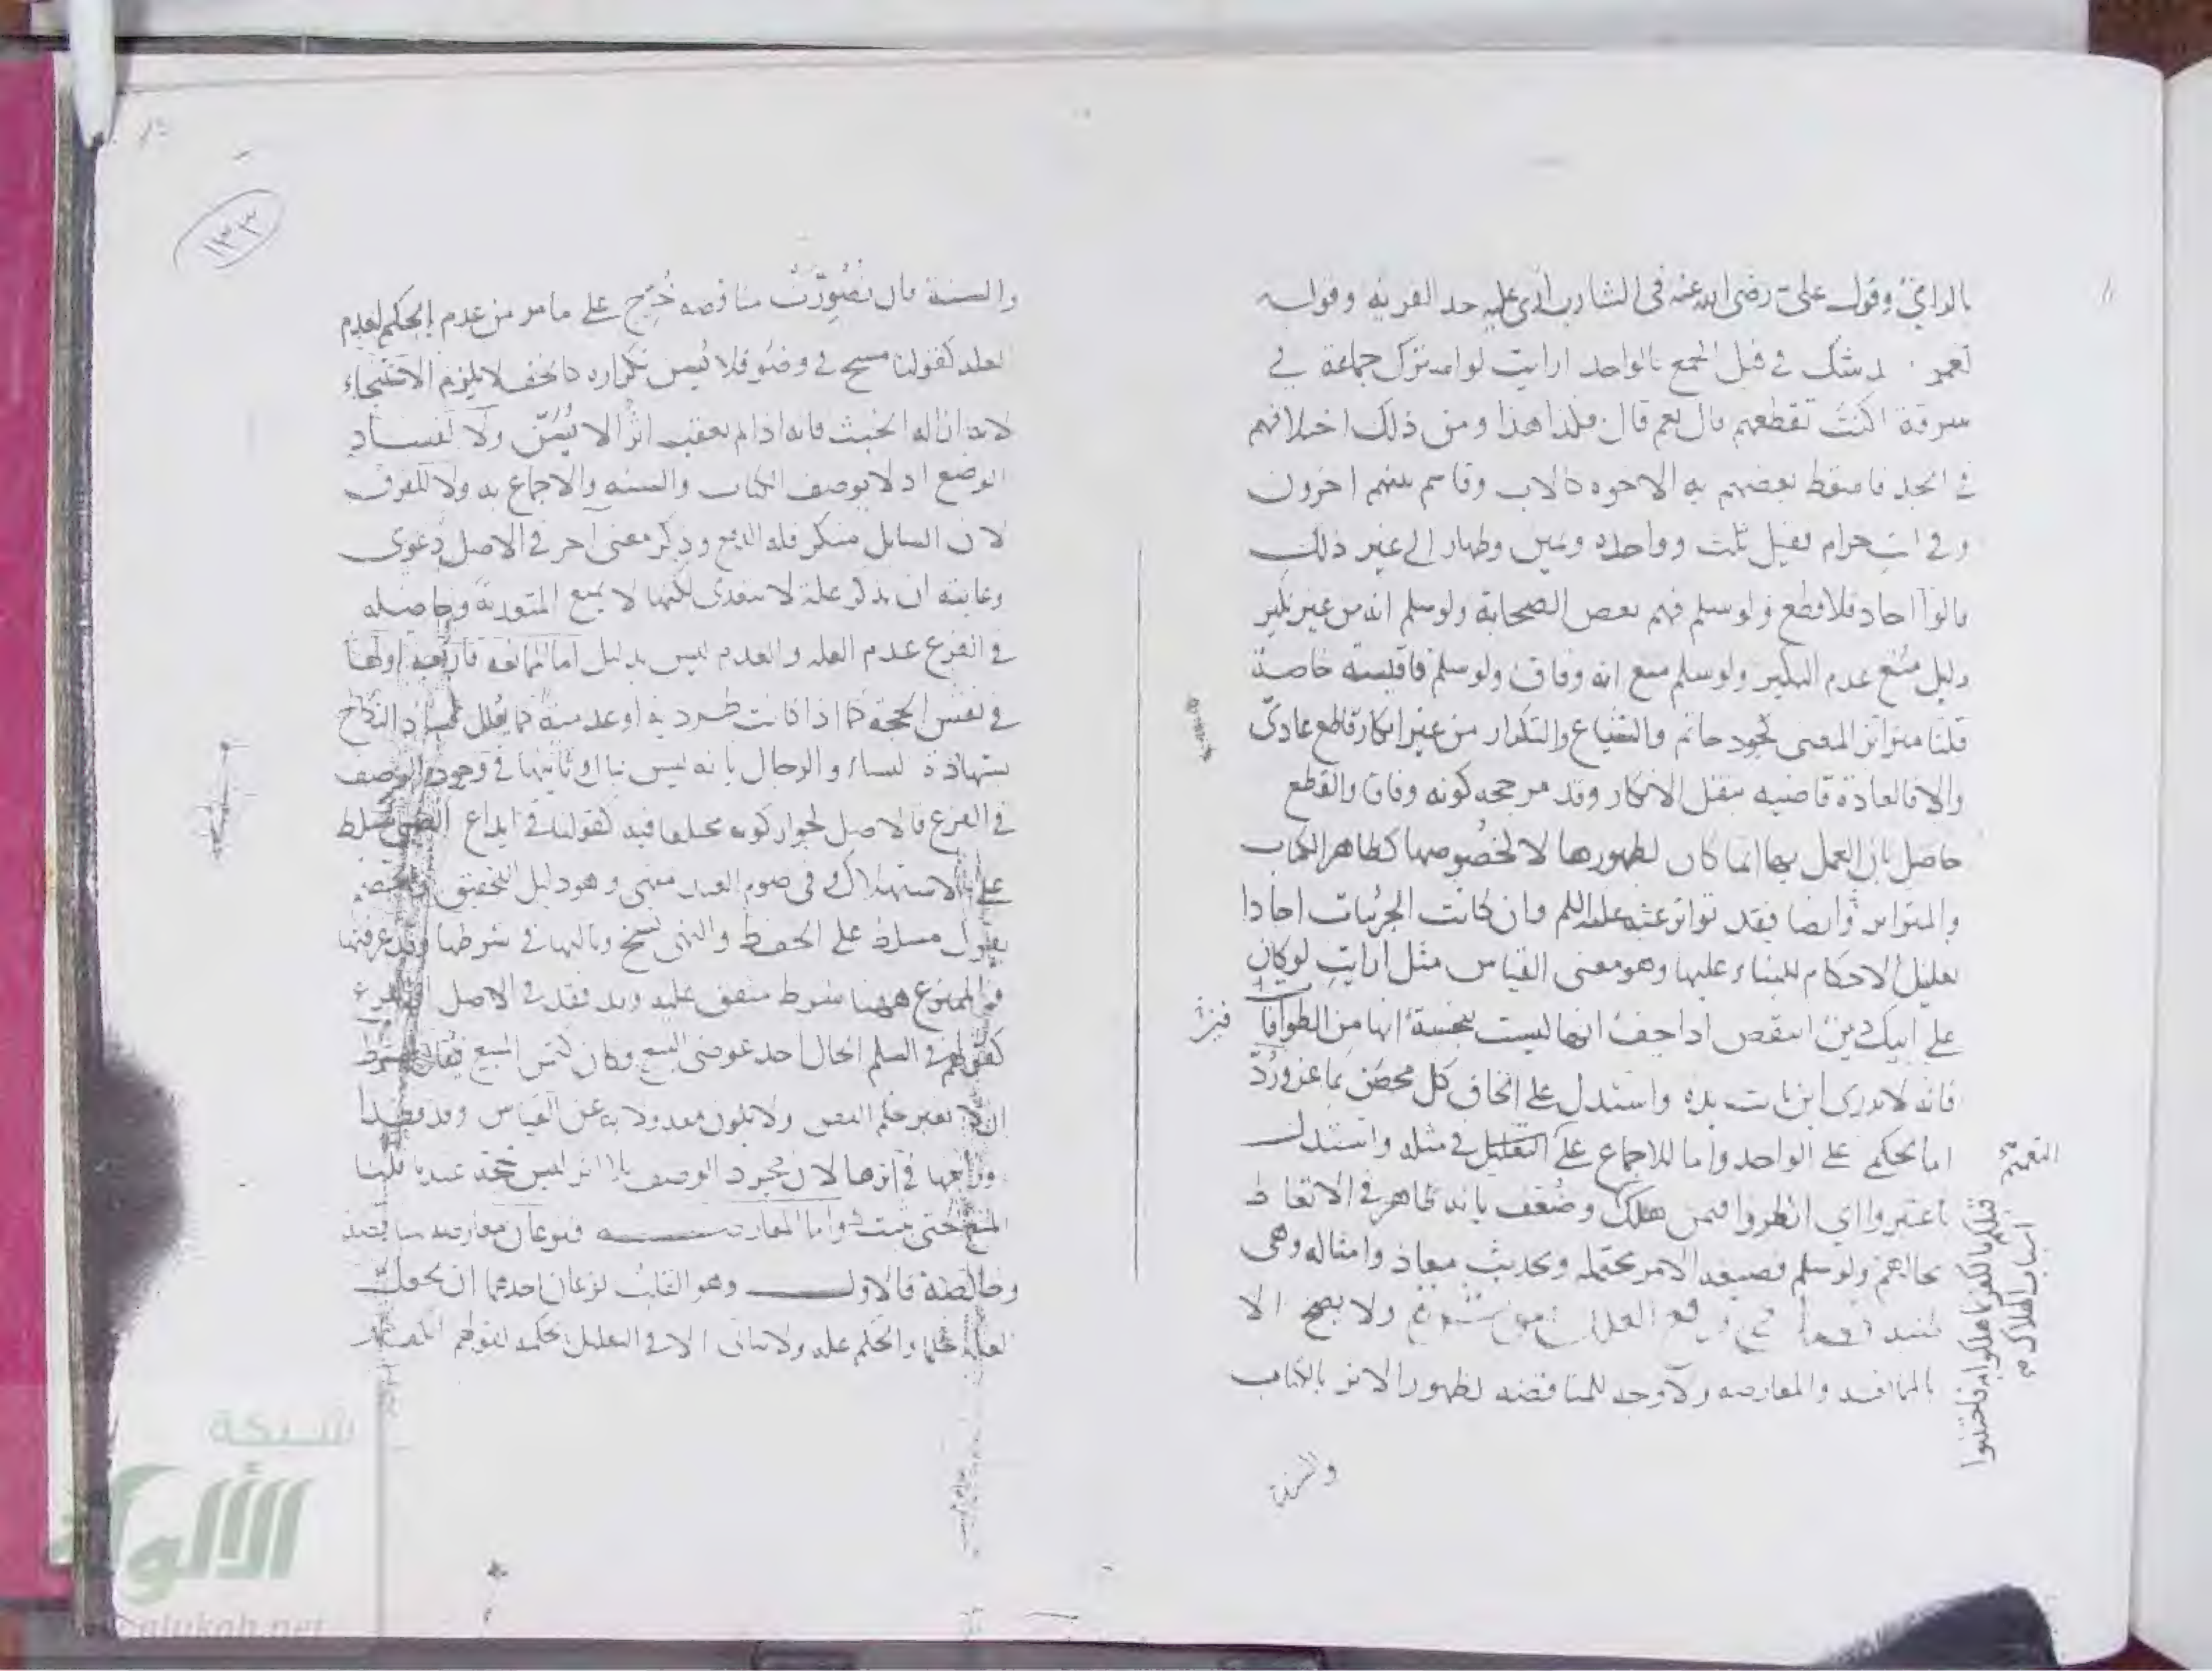 بالرافي وقول علي رضي الله عنه في الشارب اري عليه حد الفرية وقوله
لعمر شك في قتل الجمع بالواحد ارايت لو اشترك جماعة في
سرقة اكنت تقطعهم قال نعم قال فكذا هذا ومن ذلك اختلافهم
في الجد فاسقط بعضهم به الاخوة كالاب وقاسم بينهم اخرون
وفي انت حرام فقيل ثلث وواحدة ويمين وظهار الى غير ذلك
قالوا احاد فلا قطع ولو سلم فهم بعض الصحابة ولو سلم انه من غير نكير
دليل منع عدم النكير ولو سلم منع انه وفاق ولو سلم فاقيسة خاصة
قلنا متواتر المعنى كجود حاتم والشياع والتكرار من غير انكار قاطع عادي
والا فالعادة قاضيه بنقل الانكار وقد مر حجه كونه وفاق والقطع
حاصل بان العمل بها انما كان لظهورها لا لخصوصها كظاهر الكتاب
والمتواتر وايضا فقد تواتر عنه عليه السلم وان كانت الجزئيات احادا
تعليل الاحكام للبناء عليها وهو معنى القياس مثل ارايت لو كان
على ابيك دين اينقص اذا جف انها ليست بنجسة انها من الطوافين
فانه لا يدري اين باتت يده واستدل على الحاق كل محصن بماعز ورد
اما بحكمي على الواحد واما للاجماع على التعليل في مثله واستدل
باعتبروا اي انظروا فيمن هلك وضعف بانه ظاهر في الاتعاظ
ولو سلم فصيغه الامر محتمله وبحديث معاذ وامثاله وهي
ولا يصح الا
بالممانعه والمعارضه ولا وجه للمناقضه لظهور الاثر بالكتاب
والسنة
التعميم
قتلهم بالكفر ما هلكوا به فاجتنبوا
اسباب الهلاك
١٣٣
والسنة فان تصورت مناقضه خرج على ما مر من عدم الحكم لعدم
العلة كقولنا مسح في وضوء فلا يسن تكراره كالخف لا يلزم الاستنجاء
لانه ازاله الخبث فانه اذا لم يعقب اثرا لا يسن ولا لفساد
الوضع اذ لا يوصف الكتاب والسنه والاجماع به ولا للفرق
لان السايل منكر فله الدفع وذكر معنى اخر في الاصل دعوى
وغايته ان يذكر علة لا تتعدى لكنها لا يمنع المتعدية وحاصله
في الفرع عدم العله والعدم ليس بدليل اما الممانعه فاربعة اولها
في نفس الحجة كما اذا كانت طردية او عدمية كما يعلل النكاح
بشهادة النساء والرجال بانه ليس بمال وثانيها في وجود الوصف
في الفرع فالاصل لجواز كونه مختلفا فيه كقولنا في ايداع الصبي مسلط
على الاستهلاك وفي صوم العيد منهي وهو دليل التحقق
يقول مسلط على الحفظ والنهي نسخ وثالثها في شرطها وقد عرفتها
والممنوع ههنا شرط متفق عليه وقد فقد في الاصل الفرع
كقولهم في السلم الحال احد عوضي البيع فكان كثمن المبيع فيقال شرط
ان لا يغير حكم النص ولا يكون معدولا به عن القياس وقد فقدا
ورابعها في اثرها لان مجرد الوصف بلا اثر ليس بحجة عندنا فلنا
المنع حتى يثبت واما المعارضه فنوعان معارضه مناقضة
وخالصة فالاول وهو القلب نوعان احدهما ان يجعل
العلة حكما والحكم علة ولا يتاتى الا في التعليل بحكم كقولهم الكفار
شبكة
الألوكة
alukah.net